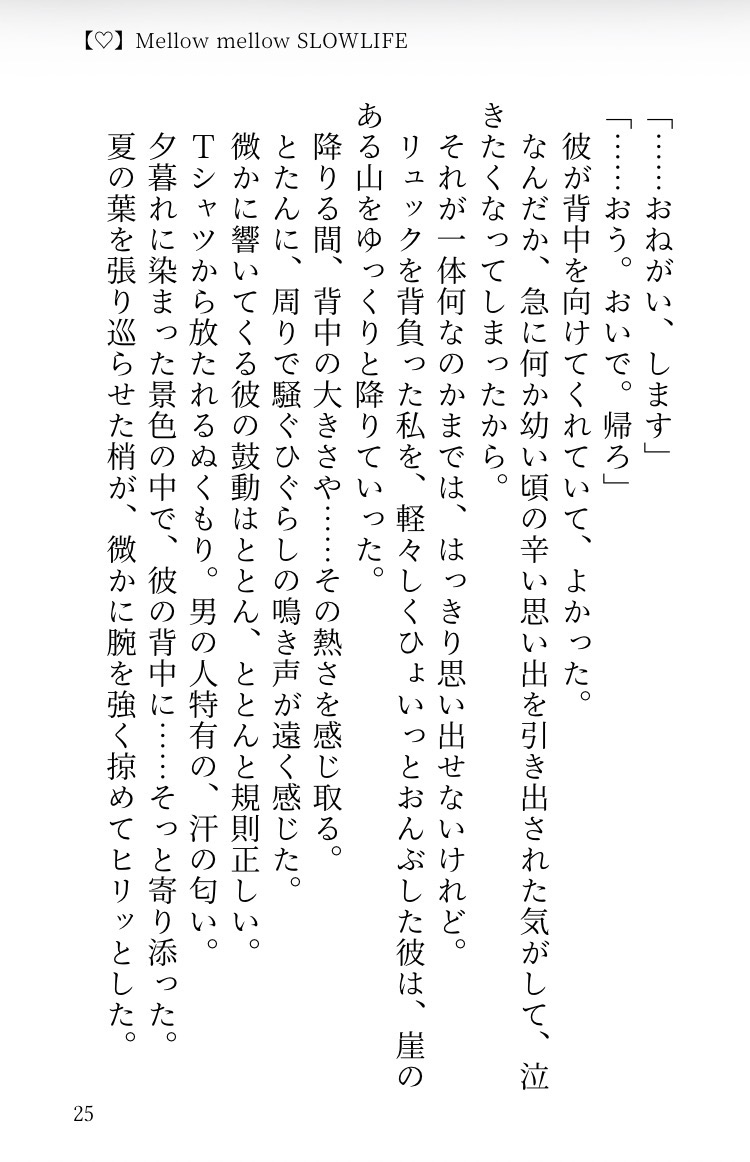 【♡】Mellow mellow SLOWLIFE
「……おねがい、します」
「……おう。おいで。帰ろ」
彼が背中を向けてくれていて、よかった。
なんだか、急に何か幼い頃の辛い思い出を引き出された気がして、泣
きたくなってしまったから。
それが一体何なのかまでは、はっきり思い出せないけれど。
リュックを背負った私を、軽々しくひょいっとおんぶした彼は、崖の
ある山をゆっくりと降りていった。
降りる間、背中の大きさや……その熱さを感じ取る。
とたんに、周りで騒ぐひぐらしの鳴き声が遠く感じた。
微かに響いてくる彼の鼓動はととん、ととんと規則正しい。
Tシャツから放たれるぬくもり。男の人特有の、汗の匂い。
夕暮れに染まった景色の中で、彼の背中に……そっと寄り添った。
夏の葉を張り巡らせた梢が、微かに腕を強く掠めてヒリッとした。
25